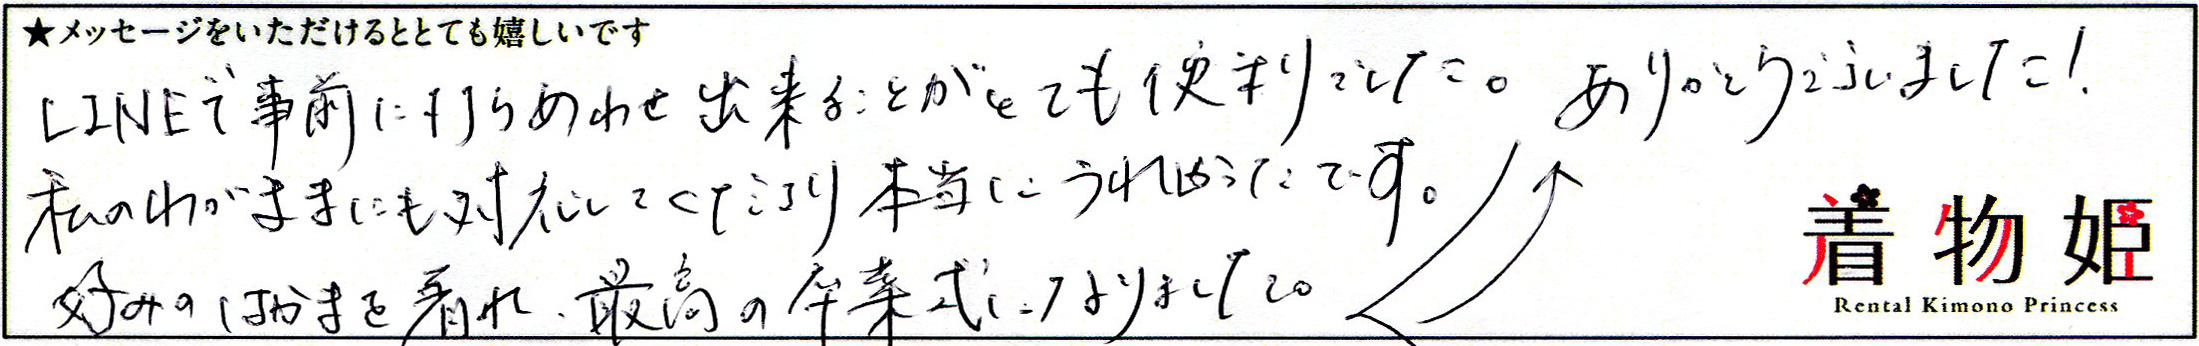 ★メッセージをいただけるととても嬉しいです
LINEで事前に打ちあわせ出来ることがとても便利でした。
私のわがままにも対応してくださり本当にうれしかったです。
好みのはかまを着れ、最高の卒業式になりました。
ありがとうございました!
着物姫
Rental Kimono Princess